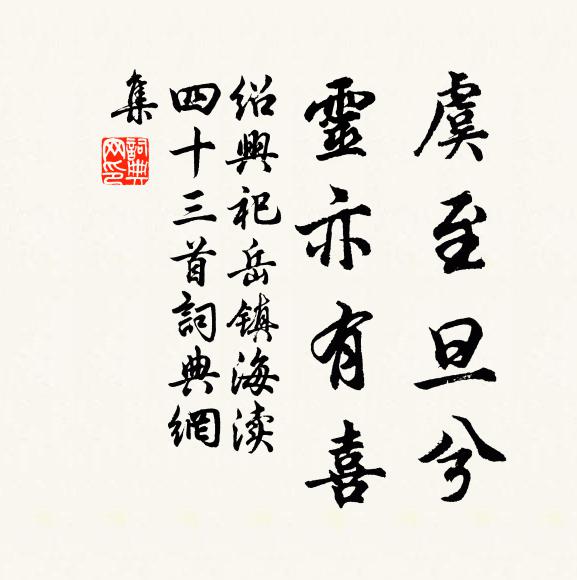 虞至旦兮
靈亦有喜
紹興祀岳鎮海渎
四十三首詞典網
集
詞典網印